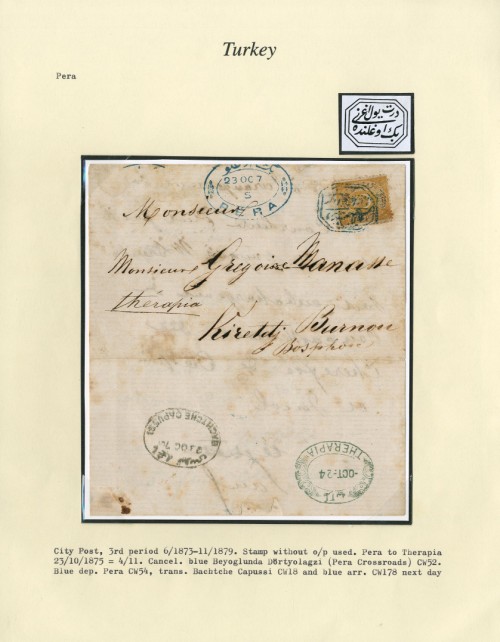 Turkey
Pera
درت يول اغزى
بك اوغلنده
23 OCT 7
5
PERA
Monsieur
Monsieur Gregoire Manasse
therapia
Kiretdj Burnou
s/ Bosphore
BACHTCHE CAPUSSI
23 OC 7
THERAPIA
-OCT:24
City Post, 3rd period 6/1873-11/1879. Stamp without o/p used. Pera to Therapia
23/10/1875 = 4/11. Cancel. blue Beyoglunda Dörtyolagzi (Pera Crossroads) CW52.
Blue dep. Pera CW54, trans. Bachtche Capussi CW18 and blue arr. CW178 next day